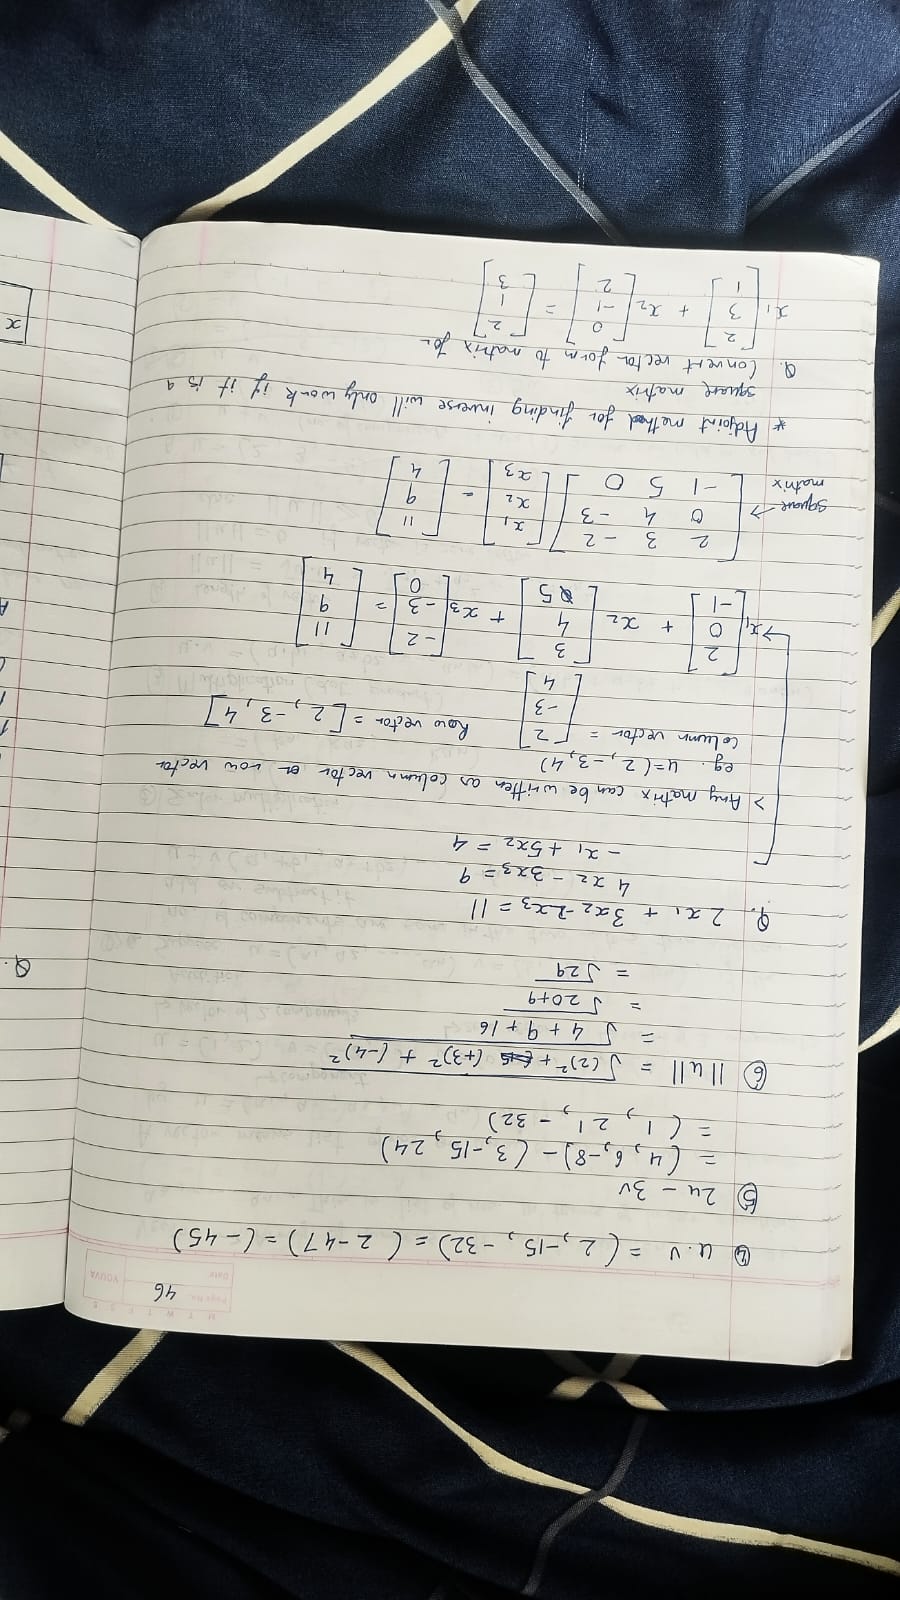 M T W T F S S
Page No. 46
Date: YOUVA
④ u.v = (2, -15, -32) = (2-47) = (-45)
⑤ 2u - 3v
= (4, 6, -8) - (3, -15, 24)
= (1, 21, -32)
⑥ ||u|| = √(2)² + (+3)² + (-4)²
= √4+9+16
= √20+9
= √29
Q. 2x₁ + 3x₂ - 2x₃ = 11
4x₂ - 3x₃ = 9
-x₁ + 5x₂ = 4
> Any matrix can be written as column vector or row vector
eg. u=(2, -3, 4)
Column vector = [2 Row vector = [2, -3, 4]
-3
4]
x₁ [2 0 -1] + x₂ [3 4 5] + x₃ [-2 -3 0] = [11 9 4]
square matrix → [2 3 -2
0 4 -3
-1 5 0] [x₁ x₂ x₃] = [11 9 4]
* Adjoint method for finding inverse will only work if it is a
square matrix
Q. Convert vector form to matrix for
x₁ [2 3 1] + x₂ [0 -1 2] = [2 1 3]
Q.
x